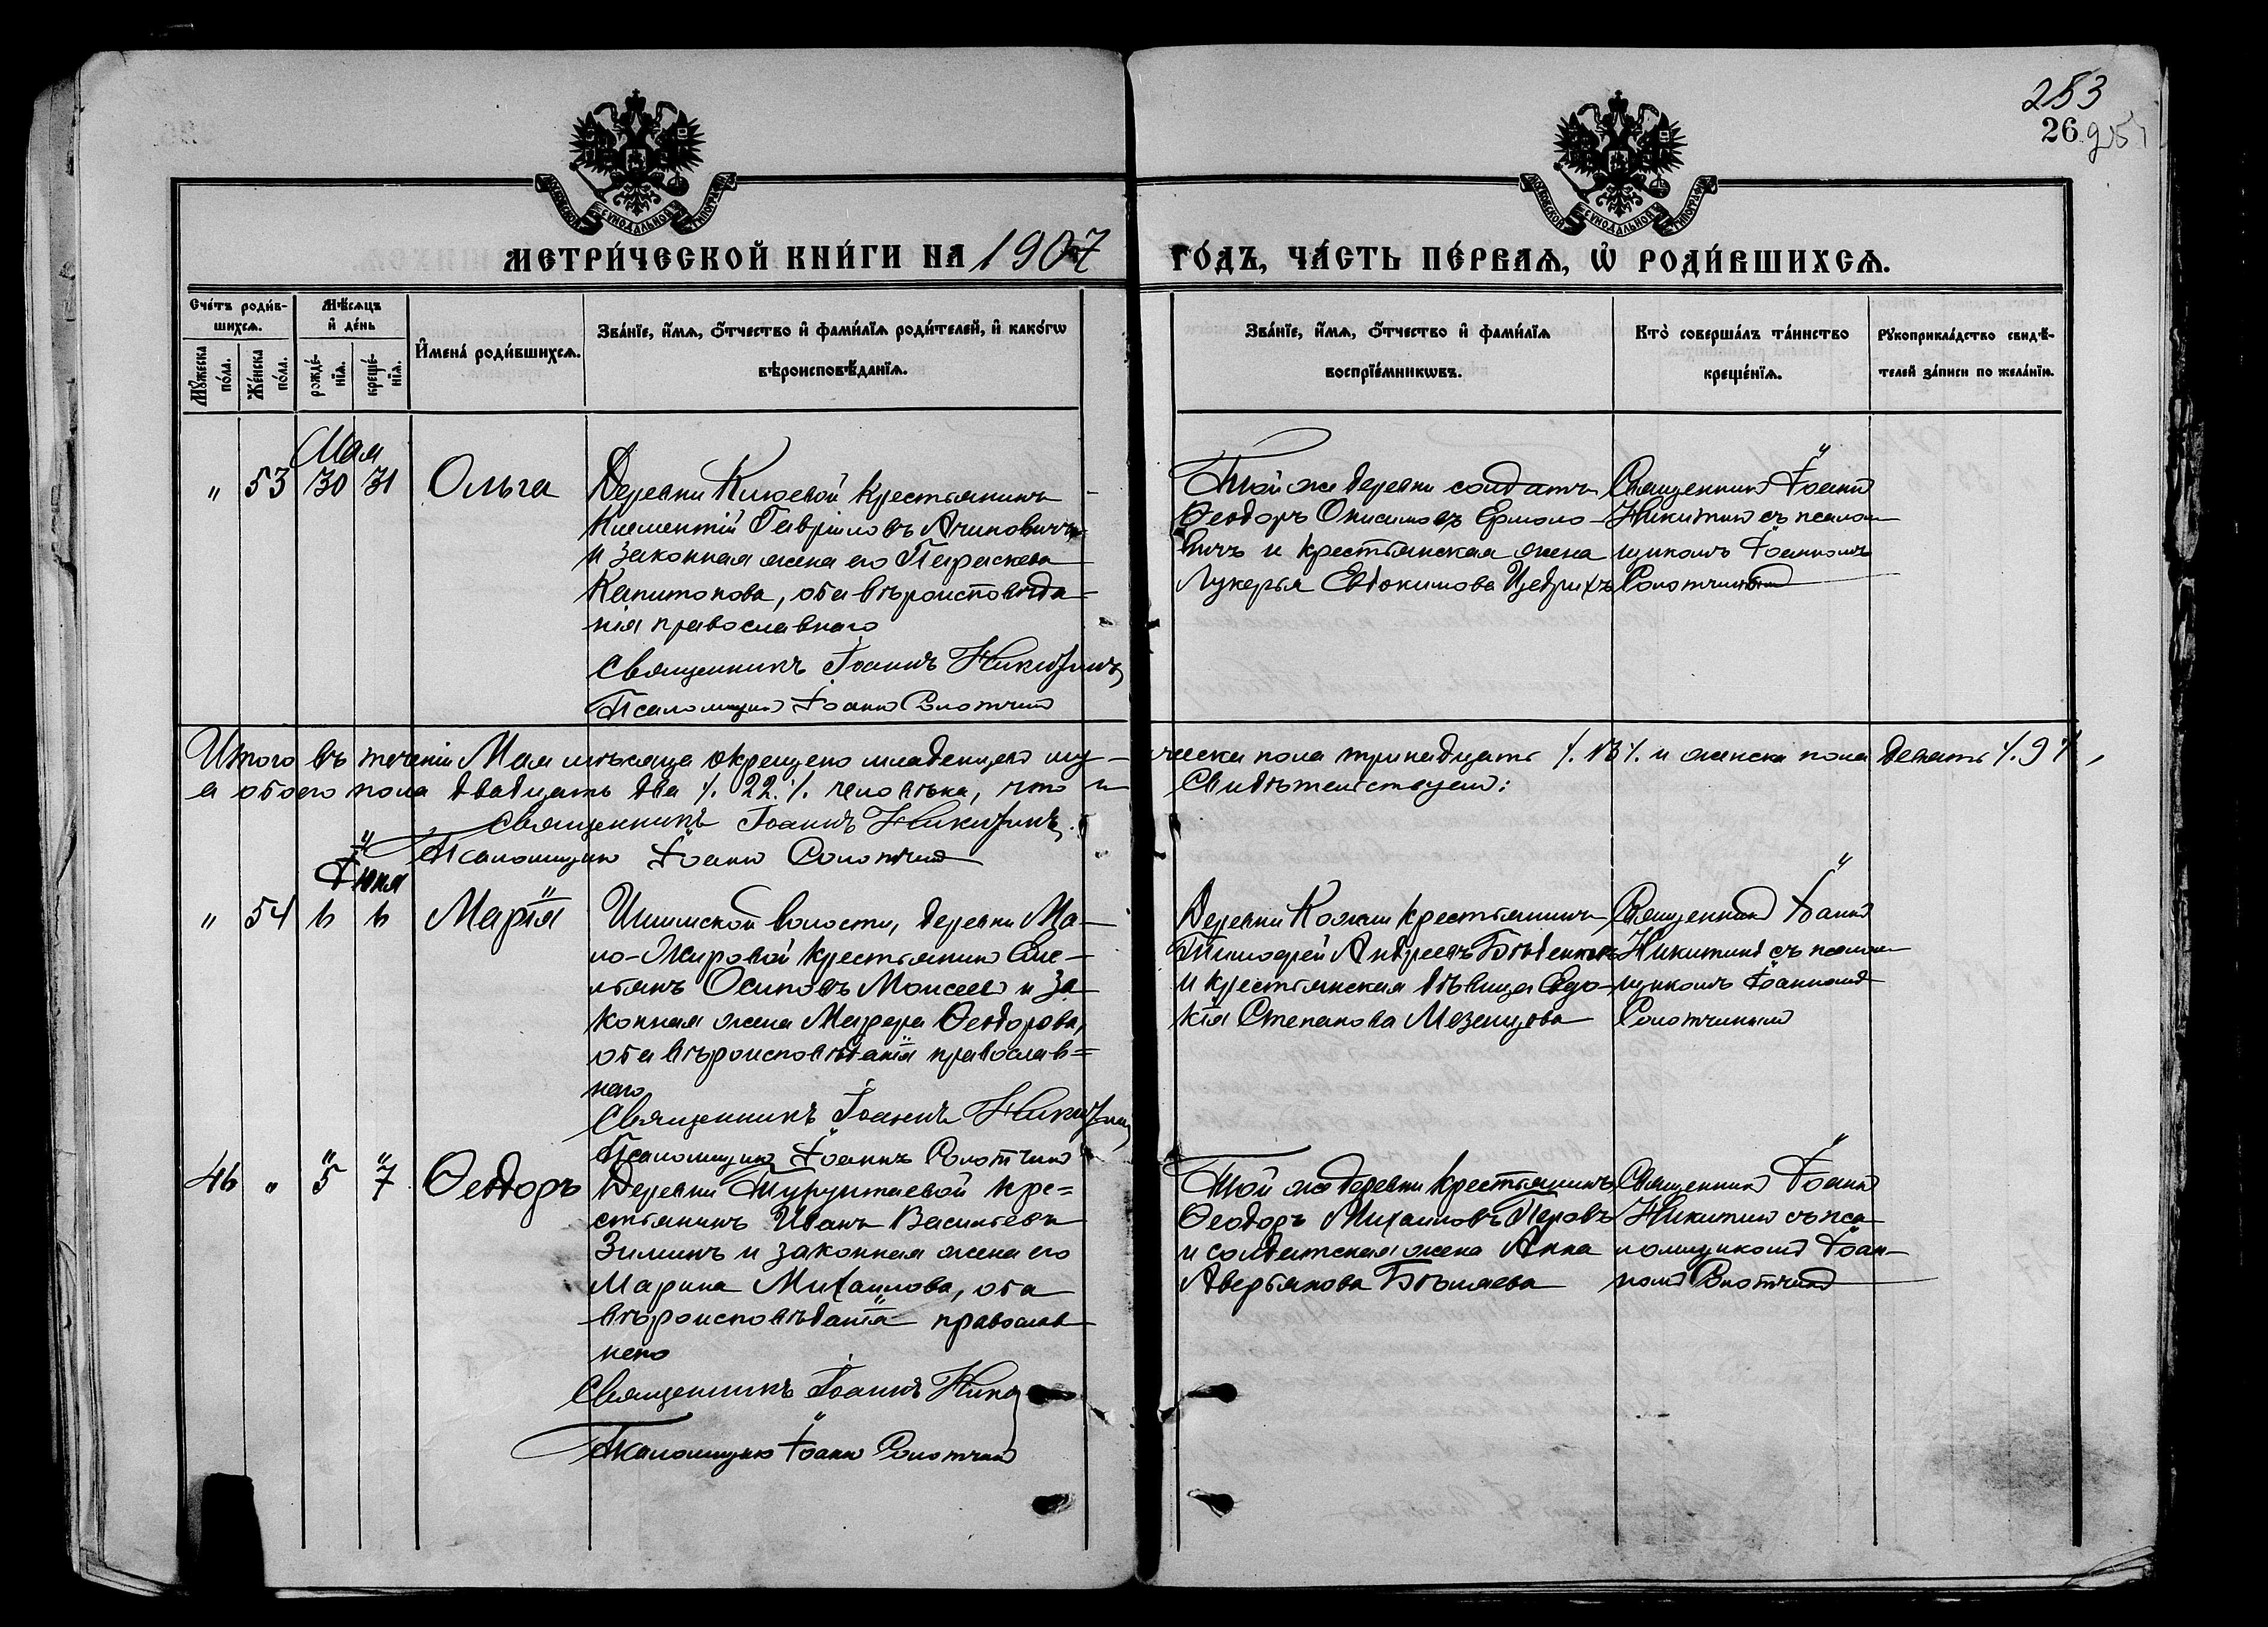 253
26
МЕТРИ́ЧЕСКОЙ КНИ́ГИ НА 1907 ГО́ДЪ, ЧА́СТЬ ПЕ́РВАЯ, Ѡ РОДИ́ВШИХСЯ.
Сче́тъ роди́в-
шихся.
Му́жеска по́ла.
Же́нска по́ла.
Мѣ́сяцъ и де́нь
рожде́-
нїя.
креще́-
нїя.
И́мена роди́вшихся.
Зва́нїе, и́мя, о́тчество и фами́лїя роди́телей, и како́гѡ
вѣроисповѣ́данїя.
Зва́нїе, и́мя, о́тчество и фами́лїя
воспрїе́мникѡвъ.
Кто̀ соверша́лъ та́инство
креще́нїя.
Рукоприкла́дство свидѣ́-
телей за́писи по жела́нїю.
Мая
" 53 30 31 Ольга
Деревни Клюевой крестьянинъ
Климентій Гавріиловъ
и законная жена его Параскева
Капитонова, оба вѣроисповѣда-
нія православнаго
Священникъ Іоаннъ Никитинъ
Псаломщикъ Іоаннъ Солотчинъ
Той же деревни солдатъ
Ѳеодоръ Онисимовъ Ермоло-
вичъ и крестьянская жена
Лукерья Евдокимова
Священникъ Іоаннъ
Никитинъ съ псалом-
щикомъ Іоанномъ
Солотчинымъ
Итого въ теченіи Мая мѣсяца окрещено младенцевъ му-
жеска пола тринадцать /.13/. и женска пола девять /.9/.,
а обоего пола двадцать два /.22./. человѣка, что и
Свидѣтельствуемъ:
Священникъ Іоаннъ Никитинъ
Псаломщикъ Іоаннъ Солотчинъ
Іюня
" 54 6 6 Марія
Ишимской волости, деревни Ма-
ло-Жировой крестьянинъ
Осиповъ Моисеевъ и за-
конная жена Марфа Ѳеодорова,
оба вѣроисповѣданія православ=
наго
Священникъ Іоаннъ Никитинъ
Псаломщикъ Іоаннъ Солотчинъ
Деревни крестьянинъ
Тимофей Андреевъ
и крестьянская дѣвица Евдо-
кія Степанова Мезенцова
Священникъ Іоаннъ
Никитинъ съ псалом-
щикомъ Іоанномъ
Солотчинымъ
46 " 5 7 Ѳеодоръ
Деревни Турунтаевой кре=
стьянинъ Иванъ Васильевъ
Зиминъ и законная жена его
Марина Михаилова, оба
вѣроисповѣданія православ-
наго
Священникъ Іоаннъ Ники
Псаломщикъ Іоаннъ Солотчинъ
Той же деревни крестьянинъ
Ѳеодоръ Михаиловъ Перовъ
и солдатская жена Анна
Аверьянова Бѣляева
Священникъ Іоаннъ
Никитинъ съ пса-
ломщикомъ Іоан-
номъ Солотчинъ